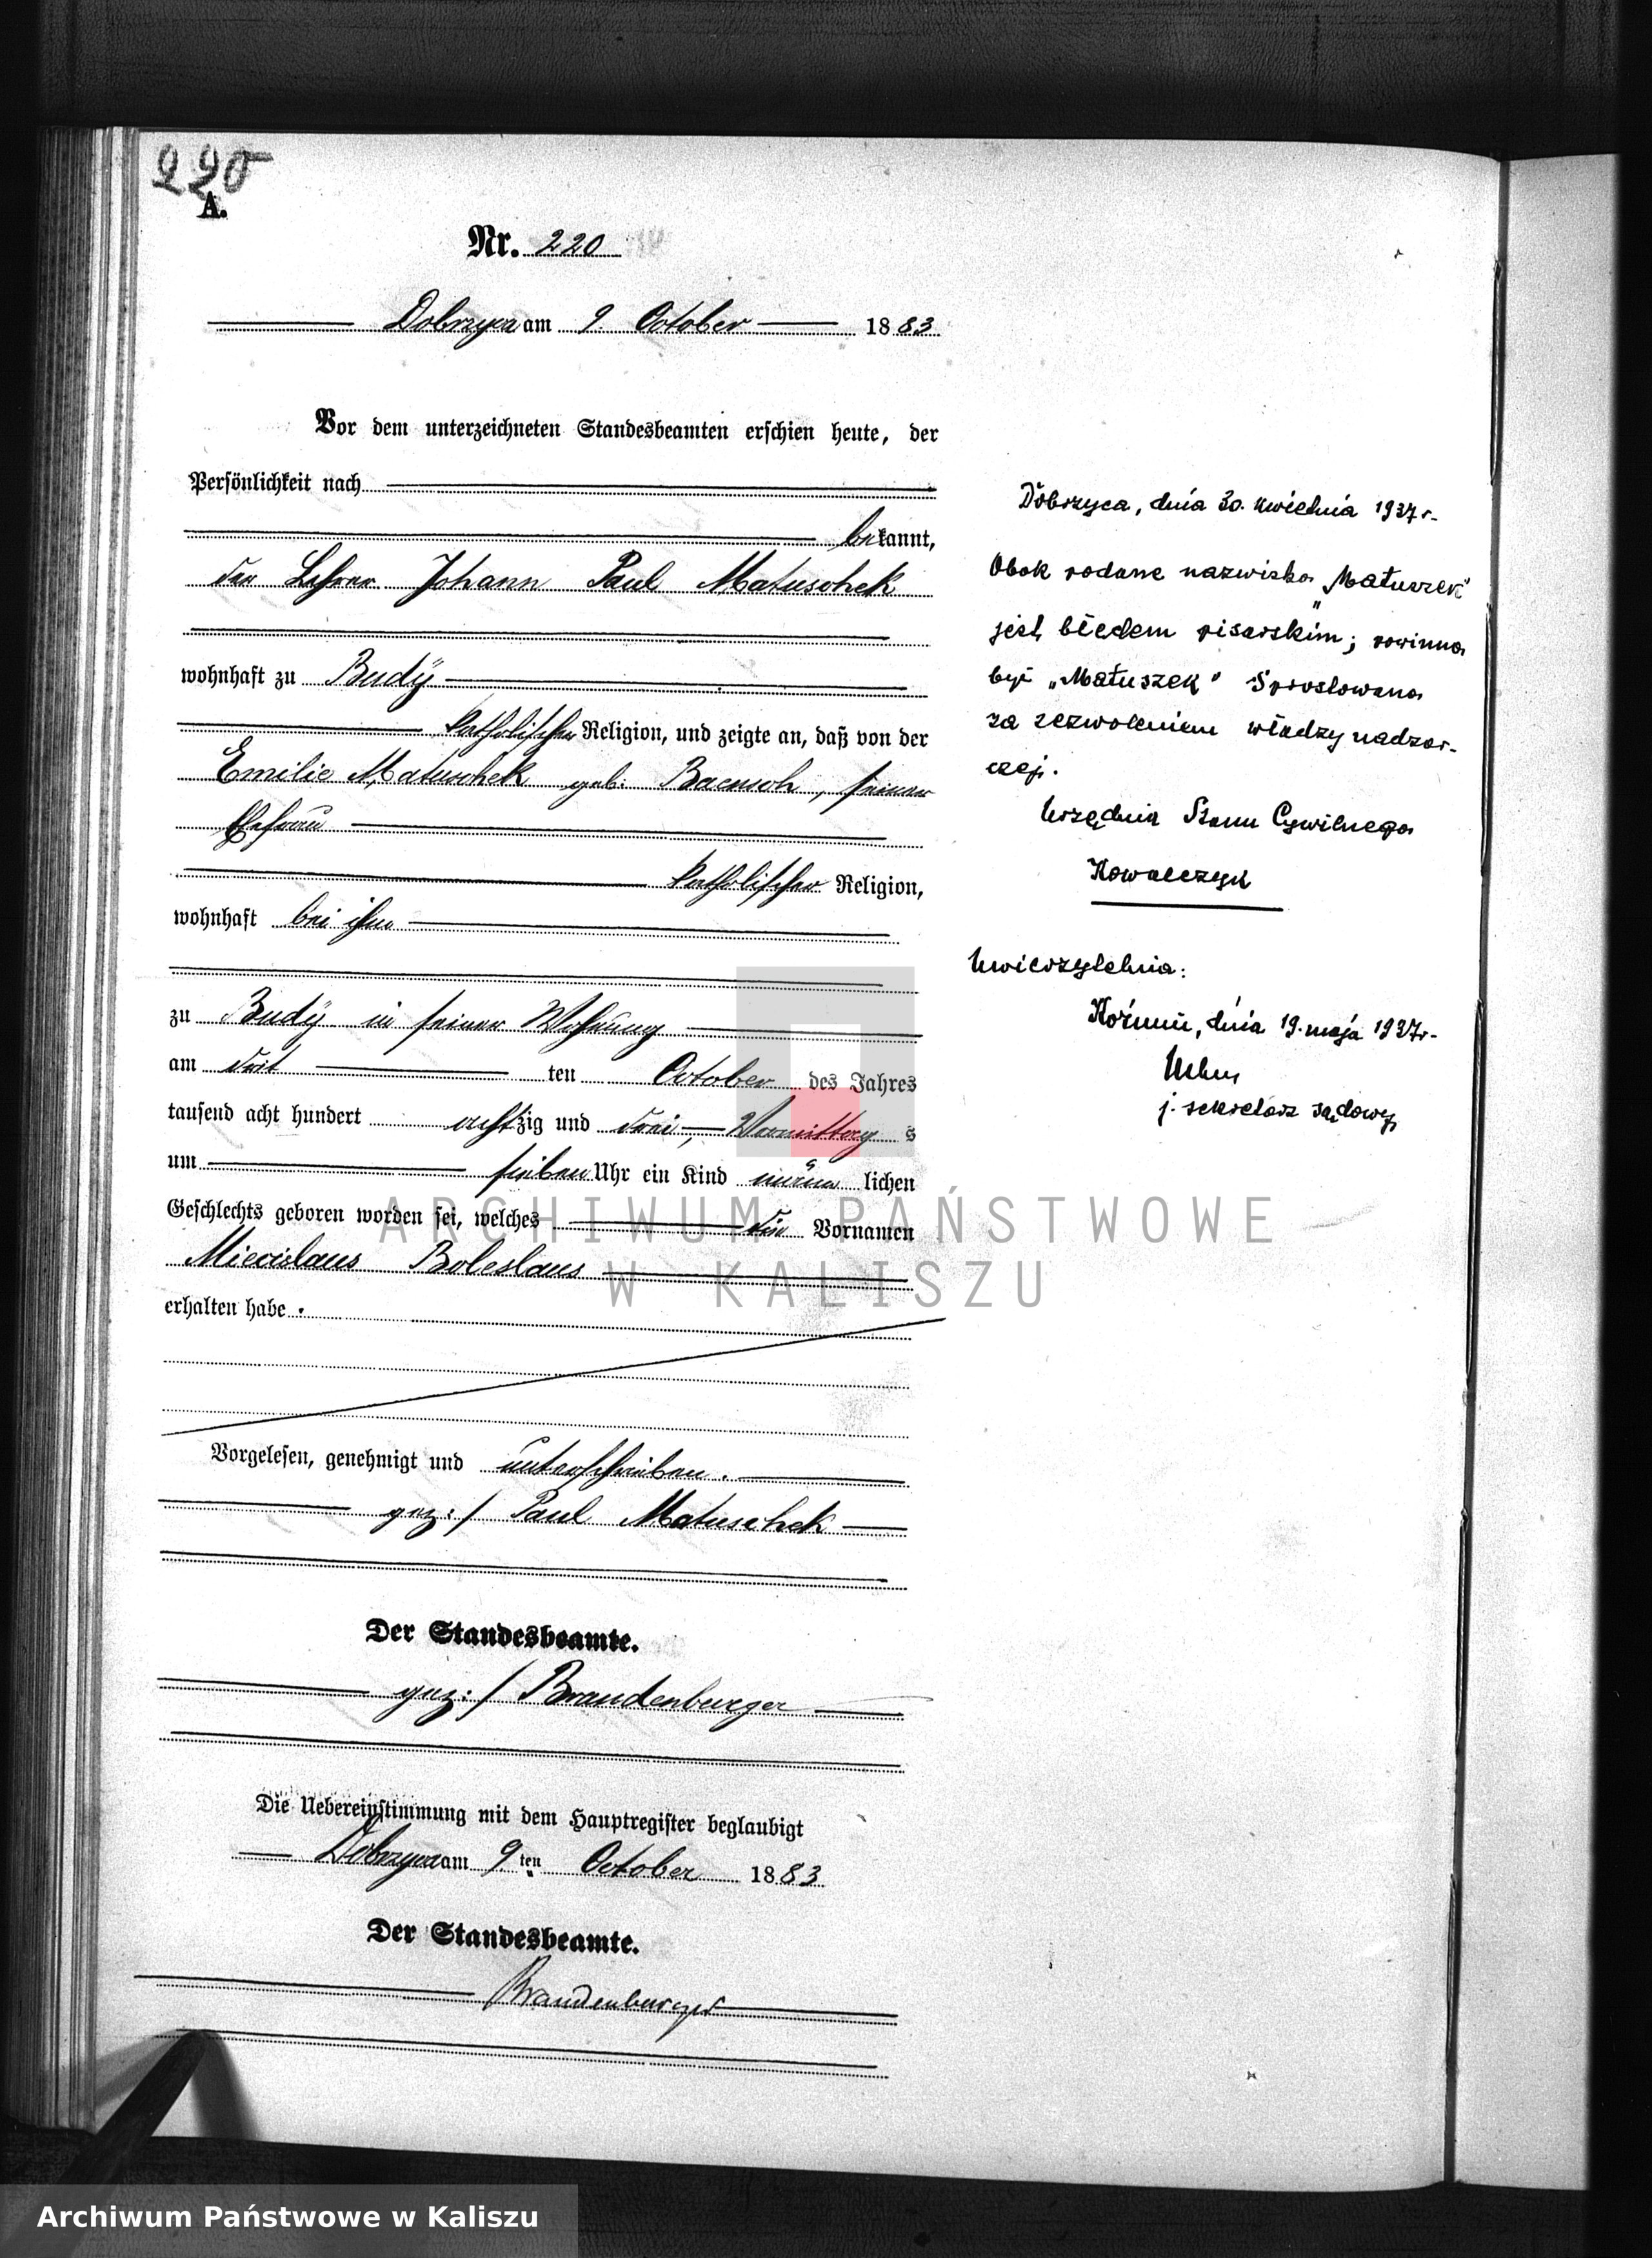 220
A.
Nr. 220
Dobrzyca am 9. October 1883
Vor dem unterzeichneten Standesbeamten erschien heute, der
Persönlichkeit nach
bekannt,
der Lehrer Johann Paul Matuschek
wohnhaft zu Budÿ
katholischer Religion, und zeigte an, daß von der
Emilie Matuschek geb. Baensch, seiner
Ehefrau
katholischer Religion,
wohnhaft bei ihm
zu Budÿ in seiner Wohnung
am drit ten October des Jahres
tausend acht hundert achtzig und drei, Vormittag s
um sieben Uhr ein Kind männ lichen
Geschlechts geboren worden sei, welches die Vornamen
Miecislaus Boleslaus
erhalten habe.
Vorgelesen, genehmigt und unterschrieben.
gez:/ Paul Matuschek
Der Standesbeamte.
gez:/ Brandenburger
Die Uebereinstimmung mit dem Hauptregister beglaubigt
Dobrzyca am 9ten October 1883
Der Standesbeamte.
Brandenburger
Dobrzyca, dnia 30. kwietnia 1937 r.
Obok podane nazwisko „Matuszek"
jest błędem pisarskim; powinno
być „Matuszek" Sprostowano
za zezwoleniem władzy nadzor-
czej.
Urzędnik Stanu Cywilnego
Kowalczyk
Uwierzytelnia:
Koźmin, dnia 19. maja 1937 r.
j. sekretarz sądowy
ARCHIWUM PAŃSTWOWE
W KALISZU
Archiwum Państwowe w Kaliszu